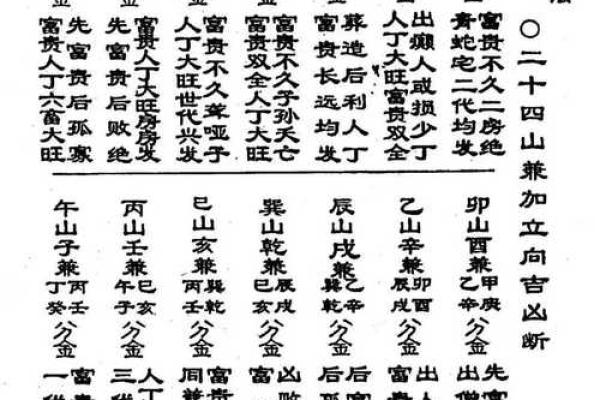 〇二十四山兼加立向吉凶断
富贵不久二房绝
青蛇宅二代均发
出癫人或损少丁
人丁大旺富贵双全
葬造后利人丁
富贵长远均发
富贵不久子孙夭亡
富贵双全人丁大旺
富贵不久聋哑子
人丁大旺世代兴发
富贵人丁大旺房房发
先富贵后败绝
先富贵后孤寡
富贵人丁六畜大旺
卯山酉兼
甲庚
乙辛
分金
先富
出僧
乙山辛兼
卯酉
辰戌
分金
出人
富贵
辰山戌兼
乙辛
巽乾
分金
后富
后出
巽山乾兼
辰戌
巳亥
分金
凶败
富
巳山亥兼
巽乾
丙壬
分金
富贵
同兼
丙山壬兼
巳亥
午子
分金
人丁
三代
午山子兼
丙壬
丁癸
分金
富贵
一代